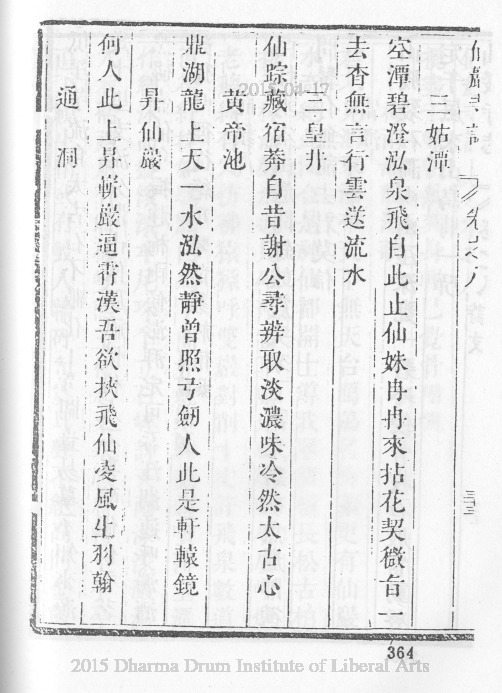 仙巖
三姑潭
空潭碧澄泓泉飛自此止仙姝冉冉來拈花契微旨一
去杳無言行雲送流水
三皇井
仙踪藏宿莽自昔謝公尋辨取淡濃味冷然太古心
黃帝池
鼎湖龍上天一水泓然靜曾照弓劒人此是軒轅鏡
昇仙巖
何人此上昇嶄巖逼霄漢吾欲挾飛仙凌風生羽翰
通洞
三十三
364
2015-04-17
2015 Dharma Drum Institute of Liberal Arts